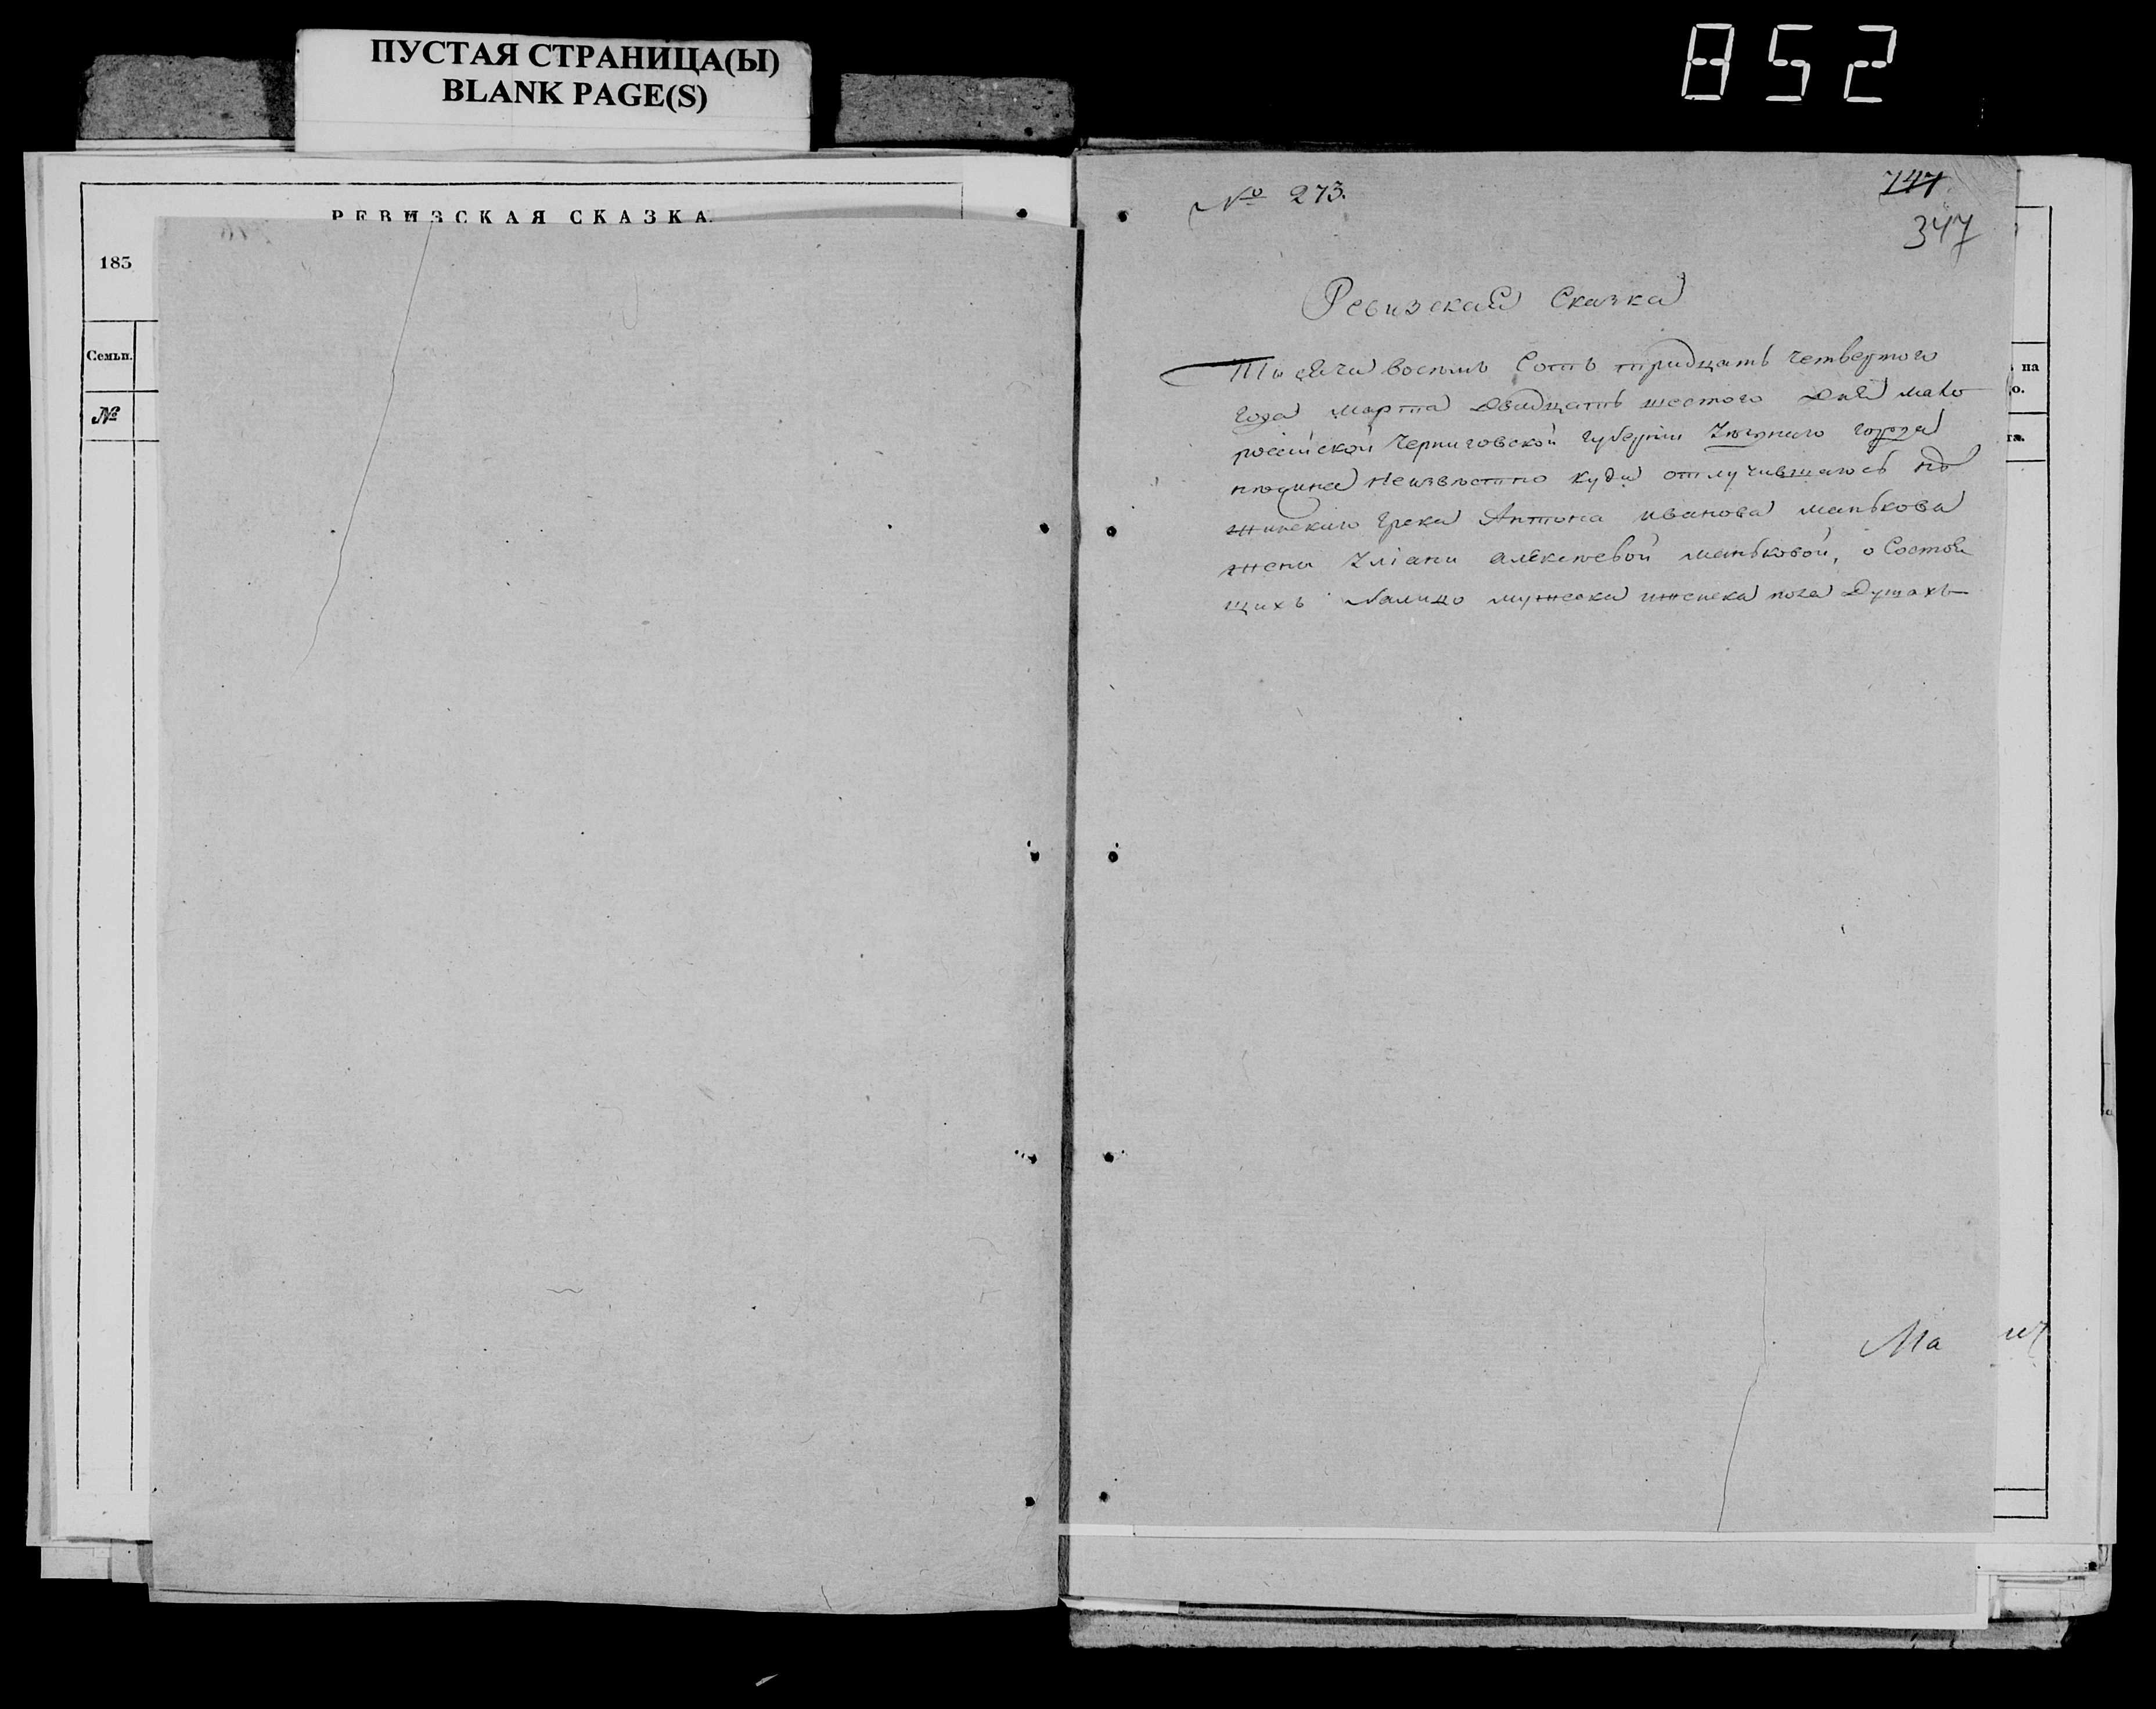 ПУСТАЯ СТРАНИЦА(Ы)
BLANK PAGE(S)
852
РЕВИЗСКАЯ СКАЗКА.
185
Семьи.
№
№ 273.
747
347
Ревизская Сказка
Тысяча восемь Сотъ тридцать четвертого
года марта двадцать шестого дня мало
россійской черниговской губерніи города
нежина неизвестно куда отлучившагось не
жинского грека Антона иванова манькова
жены Уліани алексеевой маньковой, о Состоя
щихъ налицо мужеска иженска пола душахъ
на
о.
та.
Ма